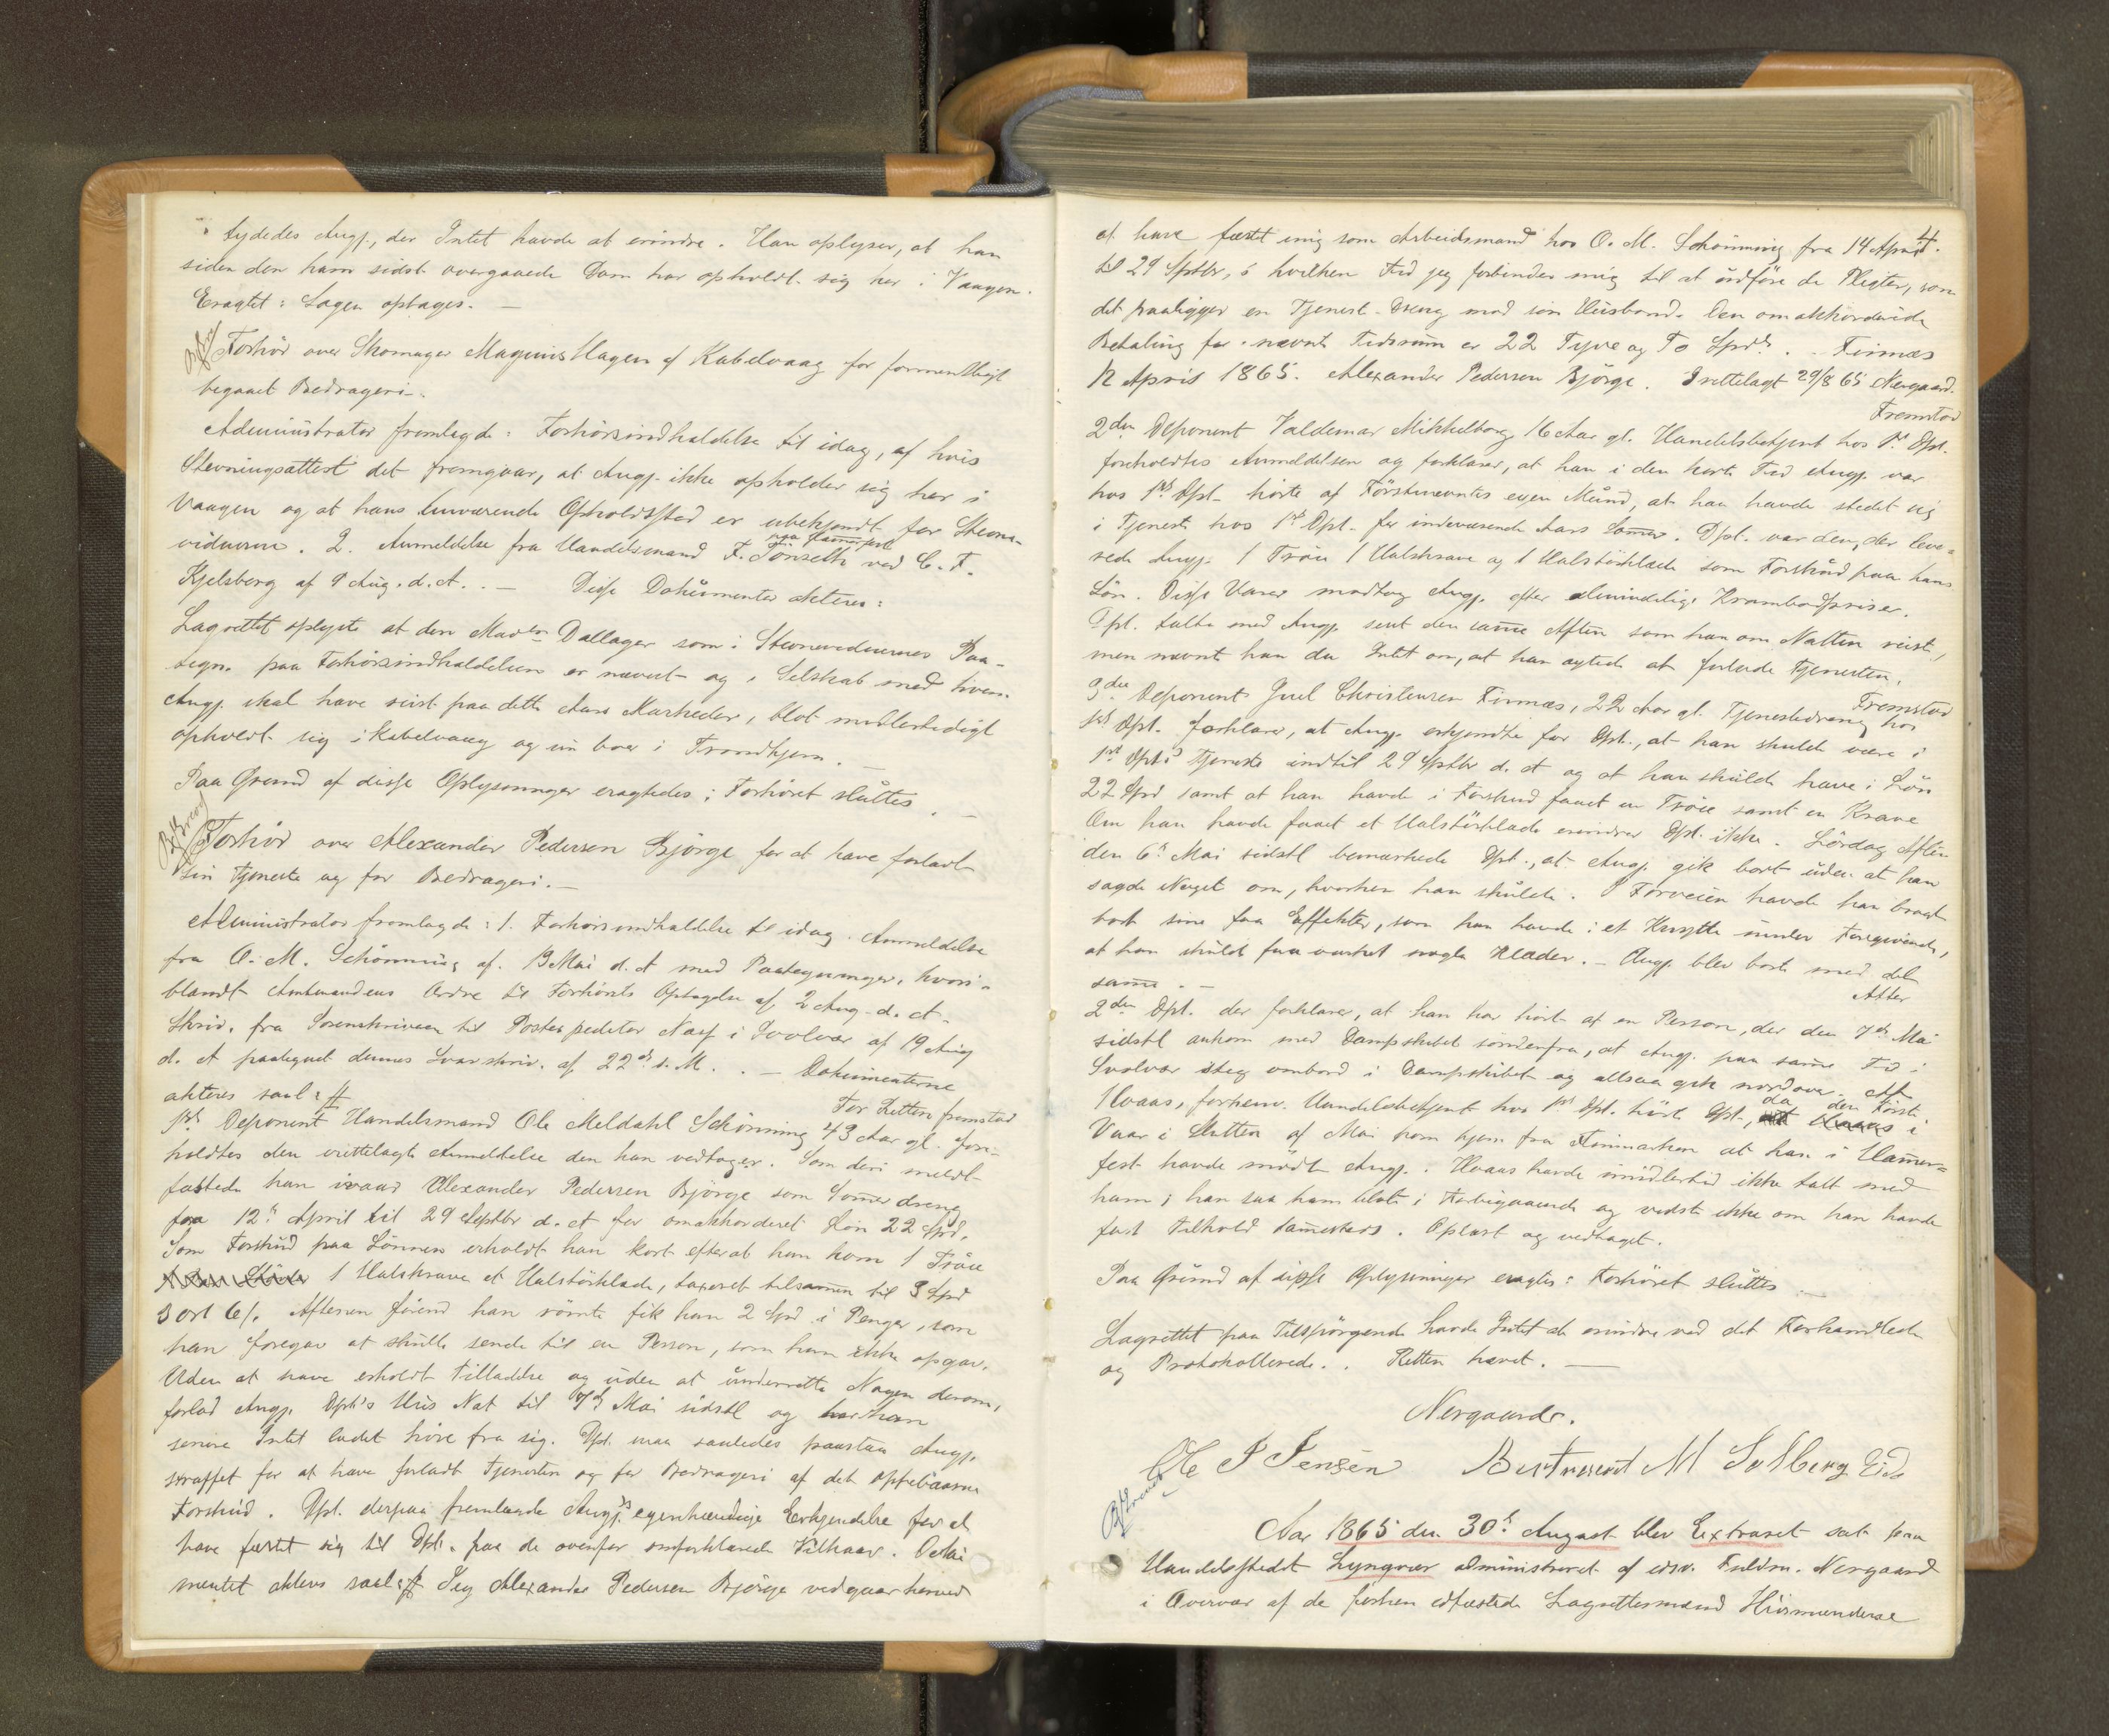 tydedes Angj., der Intet havde at erindre. Han oplyser, at han
siden den ham sidst overgaaede Dom har opholdt sig her i Vaagen.
Eragtet: Sagen optages. —
Forhör over Skomager Magnus Hagen af Kabelvaag for formentligt
begaaet Bedrageri.
Administrator fremlagde: Forhörsindkaldelse til idag, af hvis
Stevningsattest det fremgaar, at Angj. ikke opholder sig her i
Vaagen og at hans nuværende Opholdsted er ubekjendt for Stevne-
vidnerne. 2. Anmeldelse fra Handelsmand F. Tönseth ved C. F.
Kjelsberg af 9 Aug. d. A. . — Disse Dokümenter akteres:
Lagrettet oplyste at den Dallager som i Stevnevidnernes Paa-
tegn. paa Forhörsindkaldelsen er nævnt og i Selskab med hvem
Angj. skal have reist paa dette Aars Markeder, blot midlertidigt
opholdt sig i Kabelvaag og nü boer i Trondhjem. —
Paa Grund af disse Oplysninger eragtedes: Forhöret slüttes. —
Forhör over Alexander Pedersen Björge for at have forladt
sin Tjeneste og for Bedrageri. —
Administrator fremlagde: 1. Forhörsindkaldelse til idag. Anmeldelse
fra O. M. Schönning af 13 Mai d. A med Paategninger, hvori-
blandt Amtmandens Ordre til Forhörets Optagelse af 2 Aug. d. A.
Skriv. fra Sorenskriveren til Postexpeditör i Svolvær af 19 Aug
d. A paategnet dennes Svarskriv. af 22de s. M. . — Dokumenterne
akteres saal:
For Retten fremstod
1ste Deponent Handelsmand Ole Meldahl Schönning 43 Aar gl. fore-
holdtes den irettelagte Anmeldelse den han vedtager. Som deri meldt
fæstede han ivaar Alexander Pedersen Björge som Sommerdreng
fra 12te April til 29 Septbr d. A for omakkorderet Lön 22 Spd.
Som Forskud paa Lönnen erholdt han kort efterat han kom 1 Tröie
1 Halskrave et Halstörklæde, taxeret tilsammen til 3 Spd
3 ort 6/. Aftenen förend han römte fik han 2 Spd i Penge, som
han foregav at skulle sende til en Person, som han ikke opgav.
Uden at have erholdt Tilladelse og uden at ünderrette Nogen derom,
forlod Angj. Dpt's Hüs Nat til 7de Mai sidstl og har han
senere Intet ladet höre fra sig. Dpt. maa saaledes paastaa Angj.
straffet for at have forladt Tjenesten og for Bedrageri af det oppebaarne
Forskud. Dpt. derpaa fremlagde Angjs egenhændige Erkjendelse for at
have fæstet sig til Dpt. paa de ovenfor omforklarede Vilkaar. Doku
mentet akteres saal: Jeg Alexander Pedersen Björge vedgaar herved
4
at have fæstet mig som Arbeidsmand hos O. M. Schönning fra 14 April.
til 29 Septbr, i hvilken Tid jeg forbinder mig til at üdföre de Pligter, som
det paaligger en Tjeneste-Dreng mod sin Hüsbond. Den omakkorderede
Betaling for nævnte Tidsrum er 22 Tyve og To Spd. . . Finnæs
12 April 1865. Alexander Pedersen Björge. Irettelagt 29/8 65 Nergaard.
Fremstod
2den Deponent Valdemar Mikkelborg 16 Aar gl. Handelsbetjent hos 1ste Dpt.
foreholdtes Anmeldelsen og forklarer, at han i den korte Tid Angj. var
hos 1ste Dpt. hörte af Förstnævntes egen Mund, at han havde stedet sig
i Tjeneste hos 1ste Dpt. for indeværende Aars Sommer. Dpt. var den, der leve-
rede Angj. 1 Tröie 1 Halskrave og 1 Halstörklæde som Forskud paa hans
Lön. Disse Varer modtog Angj. efter almindelige Krambodpriser.
Dpt. talte med Angj. sent den samme Aften som han om Natten reiste,
men nævnte han da Intet om, at han agtede at forlade Tjenesten.
Fremstod
3die Deponent Juel Christensen Finnæs, 22 Aar gl. Tjenestedreng hos
1ste Dpt. forklarer, at Angj. erkjendte for Dpt., at han skulde være i
1ste Dpts Tjeneste indtil 29 Septbr d. A og at han skülde have i Lön
22 Spd samt at han havde i Forskud faaet en Tröie samt en Krave
Om han havde faaet et Halstörklæde erindrer Dpt. ikke. Lördag Aften
den 6te Mai sidstl bemærkede Dpt., at Angj. gik bort üden at han
sagde Noget om, hvorhen han skülde. I Forveien havde han bragt
bort sine faa Effekter, som han havde i et Knytte ünder Foregivende,
at han skulde faa vasket nogle Klæder. — Angj. blev borte med det
samme. —
Atter
2den Dpt. der forklarer, at han har hört af en Person, der den 7de Mai
sidstl ankom med Dampskibet söndenfra, at Angj. paa samme Tid i
Svolvær steg ombord i Dampskibet og altsaa gik nordover. Af
Hvaas, forhenv. Handelsbetjent hos 1ste Dpt. hörte Dpt., da den Förste i
Vaar i Slutten af Mai kom hjem fra Finmarken at han i Hammer-
fest havde mödt Angj. Hvaas havde imidlertid ikke talt med
ham; han saa ham blot i Forbigaaende og vidste ikke om han havde
fast Tilhold sammesteds. Oplæst og vedtaget.
Paa Gründ af disse Oplysninger eragtes: Forhöret slüttes —
Lagrettet paa Tilspörgende havde Intet at erindre ved det Forhandlede
og Protokollerede. . Retten hævet. —
Nergaard.
Ole P Jensen Bertreand M Solberg Eids
Aar 1865 den 30te August blev Extraret sat paa
Handelsstedet Lyngvær administreret af edsv. Fuldm. Nergaard
i Overvær af de förhen edfæstede Lagrettesmænd Hüsmændene